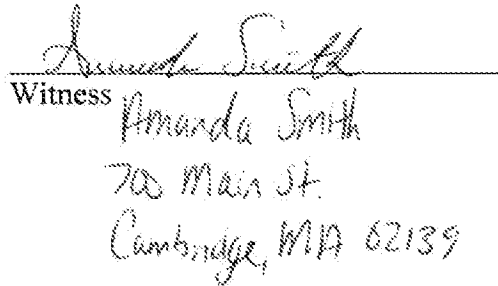 Amanda Smith
Witness
Amanda Smith
700 Main St.
Cambridge, MA 02139